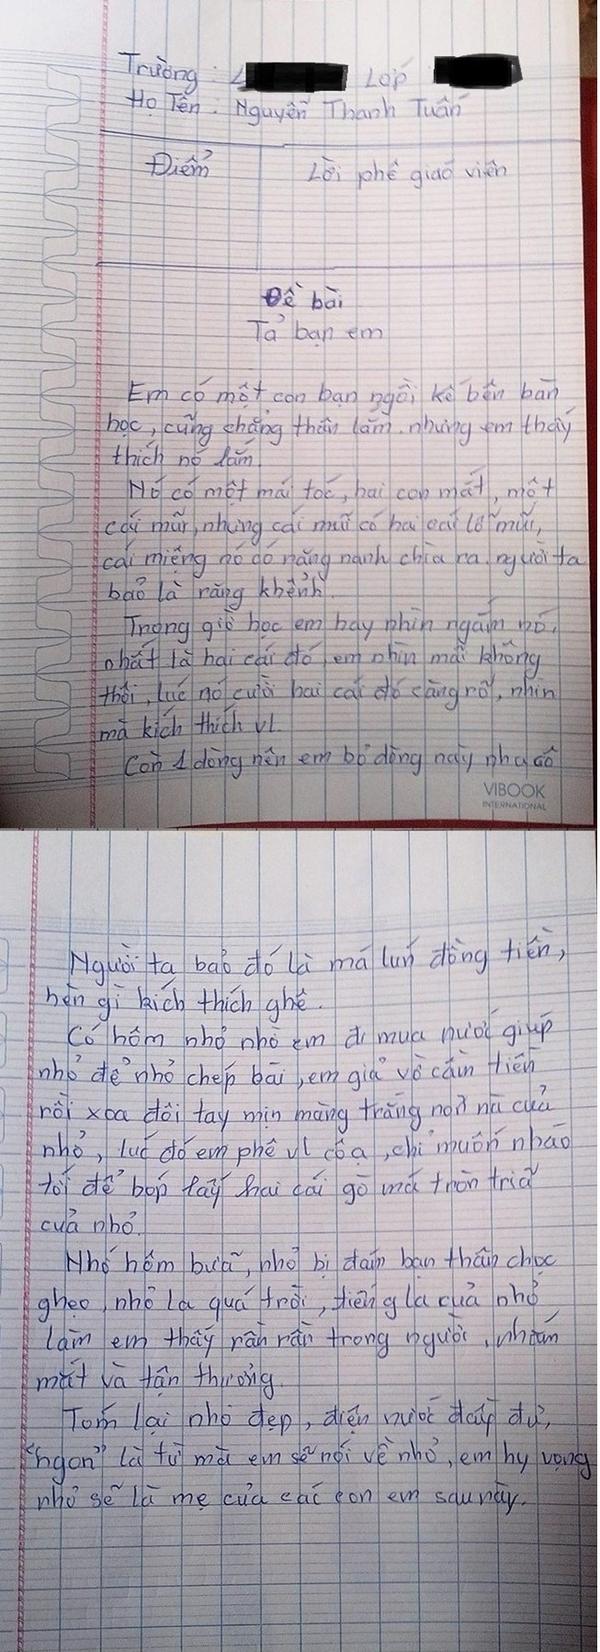 Trường: L Lớp
Họ Tên: Nguyễn Thanh Tuấn
Điểm
Lời phê giáo viên
Đề bài
Tả bạn em
Em có một con bạn ngồi kế bên bàn
học, cũng chẳng thân lắm, nhưng em thấy
thích nó lắm.
Nó có một mái tóc, hai con mắt, một
cái mũi, nhưng cái mũi có hai cái lỗ mũi,
cái miệng nó có răng nanh chìa ra, người ta
bảo là răng khểnh.
Trong giờ học em hay nhìn ngắm nó,
nhất là hai cái đó, em nhìn mãi không
thôi, lúc nó cười hai cái đó càng rõ, nhìn
mà kích thích vl.
Còn 1 dòng nên em bỏ dòng này nha cô
VIBOOK
INTERNATIONAL
Người ta bảo đó là má lún đồng tiền,
hèn gì kích thích ghê.
Có hôm nhỏ nhờ em đi mua nước giúp
nhỏ để nhỏ chép bài, em giả vờ cầm tiền
rồi xoa đôi tay mịn màng trắng nõn nà của
nhỏ, lúc đó em phê vl cô ạ, chỉ muốn nhào
tới để bóp lấy hai cái gò má tròn trịa
của nhỏ.
Nhớ hôm bữa, nhỏ bị đám bạn thân chọc
ghẹo, nhỏ la quá trời, tiếng la của nhỏ
làm em thấy rần rần trong người, nhắm
mắt và tận thưởng.
Tóm lại nhỏ đẹp, điện nước đáp đủ,
"ngon" là từ mà em sẽ nói về nhỏ, em hy vọng
nhỏ sẽ là mẹ của các con em sau này.